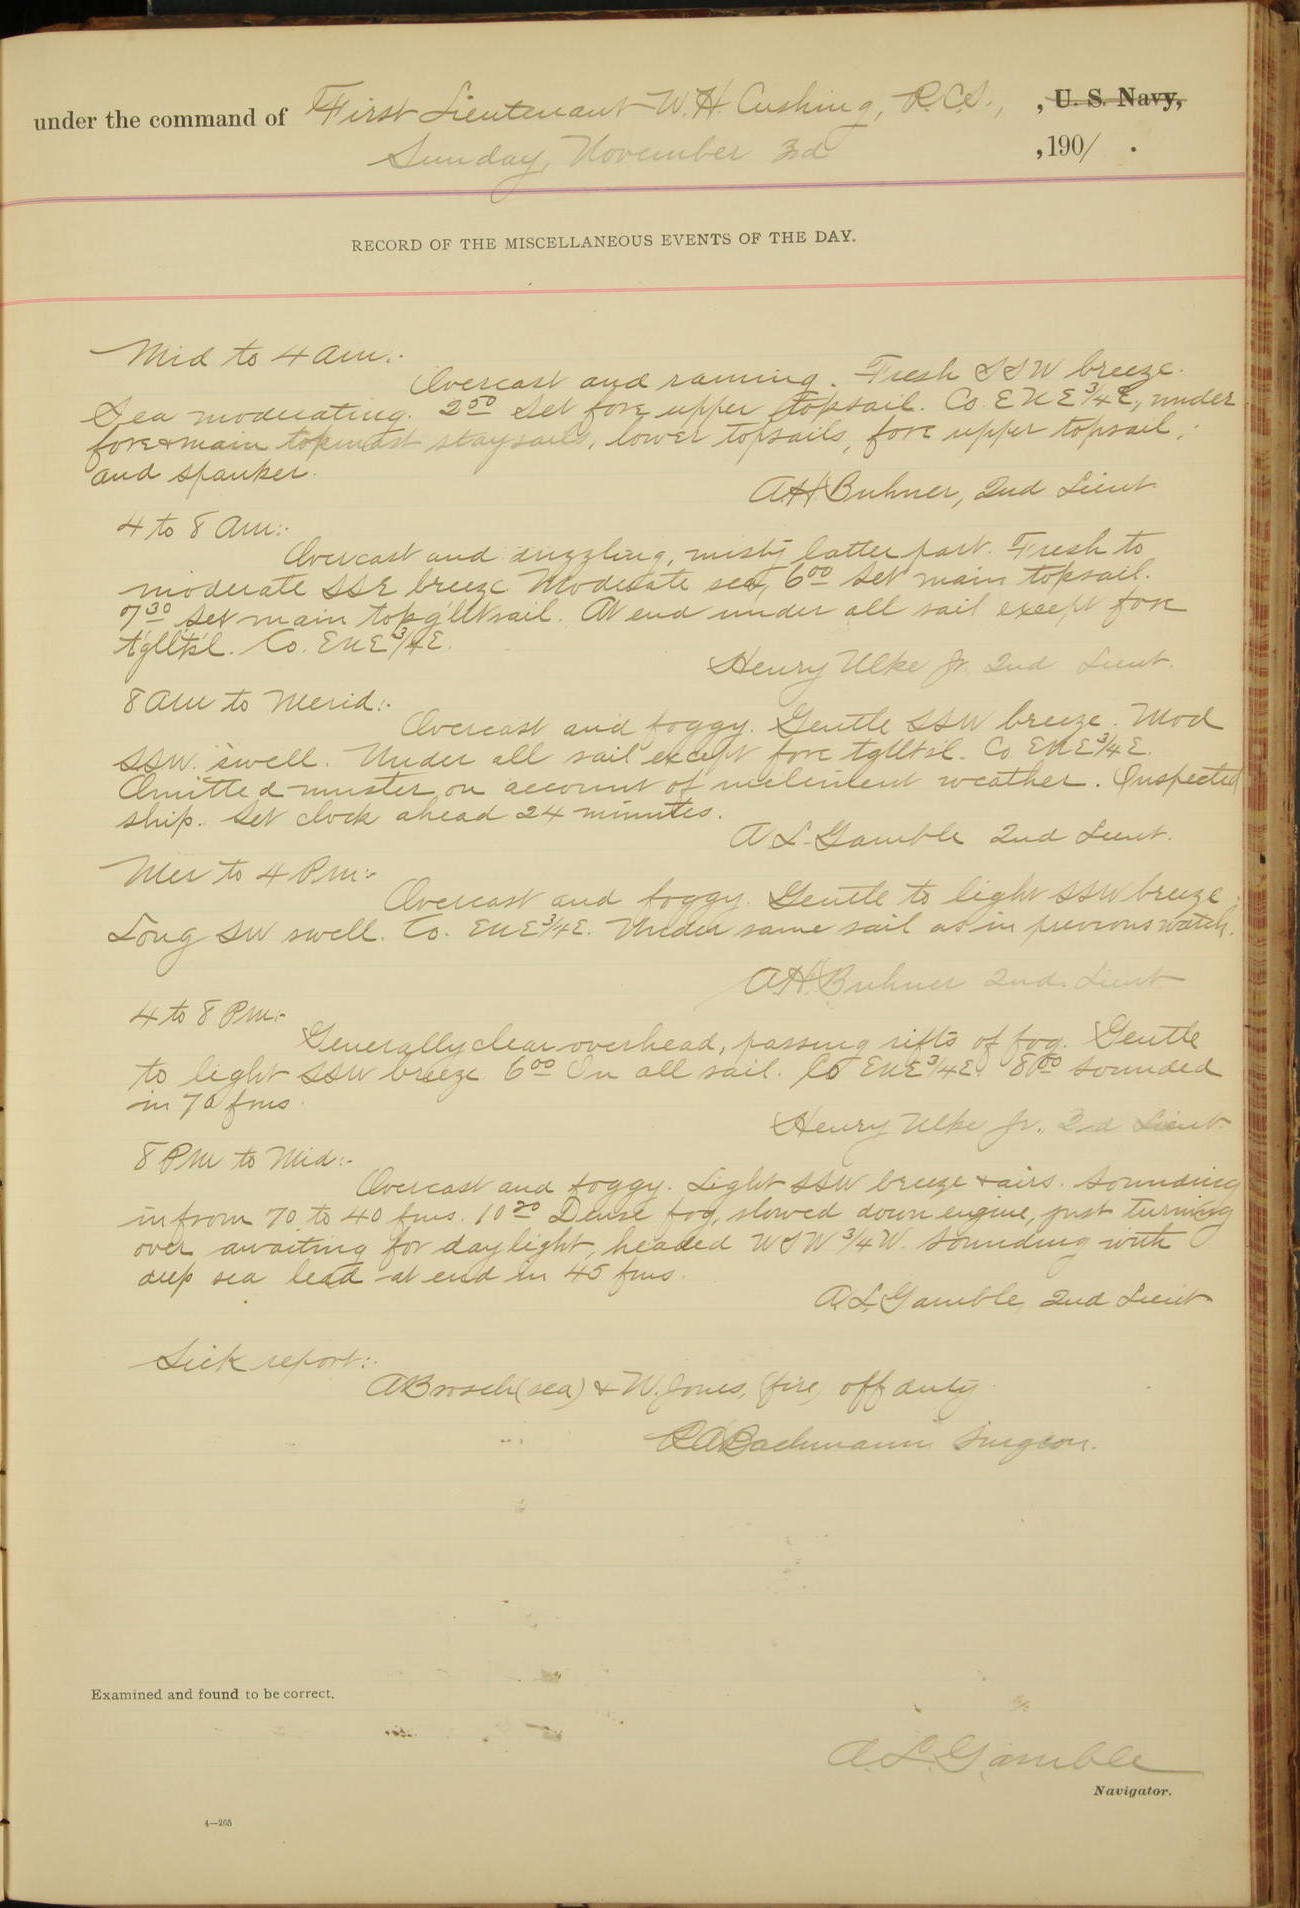 under the command of First Lieutenant W.H. Cushing, R.C.S., , U. S. Navy,
Sunday, November 3d , 1901 .
RECORD OF THE MISCELLANEOUS EVENTS OF THE DAY.
Mid to 4 am:-
Overcast and raining. Fresh SSW breeze.
Sea moderating. 2 50 Set fore upper topsail. Co. ENE 3/4 E, under
fore & main topmast staysails, lower topsails, fore upper topsail,
and spanker.
A.H. Buhner, 2nd Lieut
4 to 8 am:-
Overcast and drizzling, misty latter part. Fresh to
moderate SSE breeze. Moderate sea, 6 00 Set main topsail.
7 30 Set main topg'lltsail. At end under all sail except fore
t'glltsl. Co. ENE 3/4 E.
Henry Ulke Jr. 2nd Lieut.
8 am to Merid:-
Overcast and foggy. Gentle SSW breeze. Mod
SSW. swell. Under all sail except fore tglltsl. Co ENE 3/4 E.
Omitted muster on account of inclement weather. Inspected
ship. Set clock ahead 24 minutes.
A L. Gamble 2nd Lieut.
Mer to 4 Pm:-
Overcast and foggy. Gentle to light SSW breeze
Long SW swell. Co. ENE 3/4 E. Under same sail as in previous watch.
A.H. Buhner 2nd. Lieut
4 to 8 Pm:-
Generally clear overhead, passing rifts of fog. Gentle
to light SSW breeze 6 00 In all sail. Co ENE 3/4 E. 8 00 sounded
in 70 fms.
Henry Ulke Jr., Lieut.
8 Pm to Mid:-
Overcast and foggy. Light SSW breeze & airs. Sounding
in from 70 to 40 fms. 10 20 Dense fog, slowed down engine, just turning
over awaiting for daylight, headed WSW 3/4 W. Sounding with
deep sea lead at end in 45 fms.
A.L. Gamble, 2nd Lieut
Sick report:-
A Brosch (sea) & W. Jones, (fire) off duty
R A Bachmann Surgeon.
Examined and found to be correct.
A. L. Gamble
Navigator.
4—265